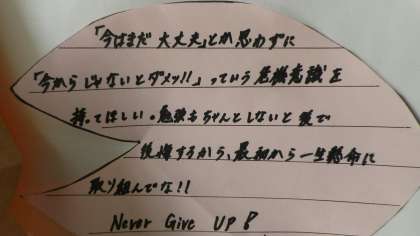 「今はまだ大丈夫」とか思わずに
「今からじゃないとダメッ!!」っていう危機意識を
持ってほしい。勉強もちゃんとしないと後で
後悔するから、最初から一生懸命に
取り組んでな!!
Never Give UP!